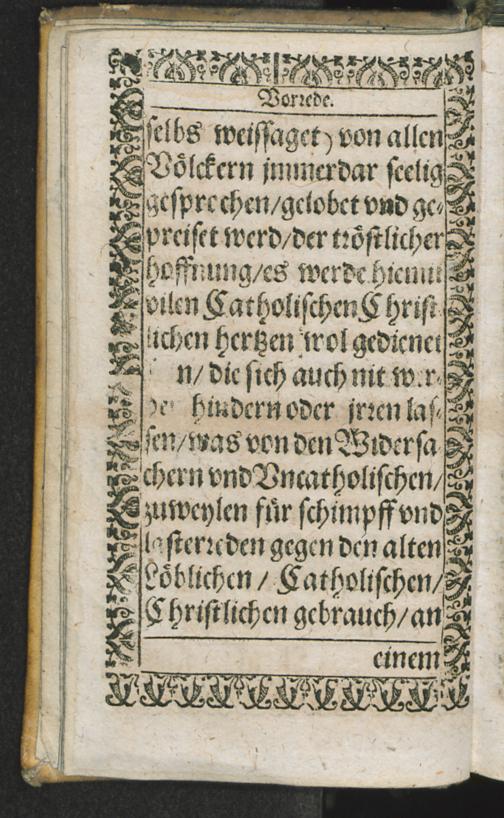 Vorrede.
selbs weissaget) von allen
Völckern jmmerdar seelig
gesprechen/gelobet vnd ge-
preiset werd/der tröstlicher
hoffnung/es werde hiemit
vilen Catholischen Christ-
lichen hertzen wol gedienet
n/ die sich auch nit wer-
hindern oder jrren las-
sen/was von den Widersa
chern vnd Vncatholischen/
zuweylen für schimpff vnd
lasterreden gegen den alten
Löblichen / Catholischen/
Christlichen gebrauch/an
einem